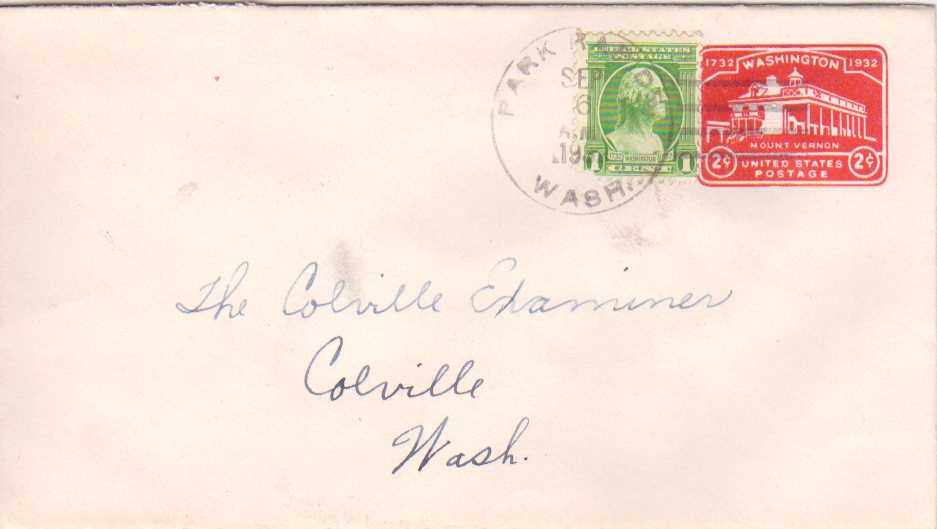 PARK
SEP
6
A.M.
19
WASH.
UNITED STATES
POSTAGE
1732 WASHINGTON
1 1
CENT
1732 WASHINGTON 1932
MOUNT VERNON
2¢ UNITED STATES 2¢
POSTAGE
The Colville Examiner
Colville
Wash.